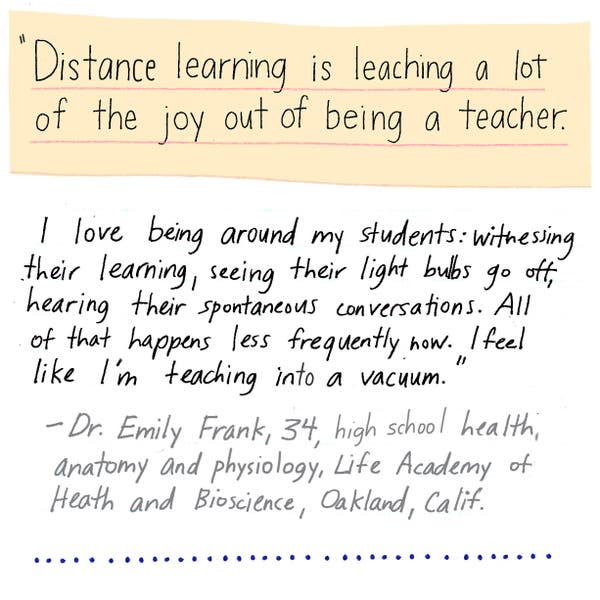 "Distance learning is leaching a lot
of the joy out of being a teacher.
I love being around my students: witnessing
their learning, seeing their light bulbs go off,
hearing their spontaneous conversations. All
of that happens less frequently now. I feel
like I'm teaching into a vacuum."
- Dr. Emily Frank, 34, high school health,
anatomy and physiology, Life Academy of
Heath and Bioscience, Oakland, Calif.